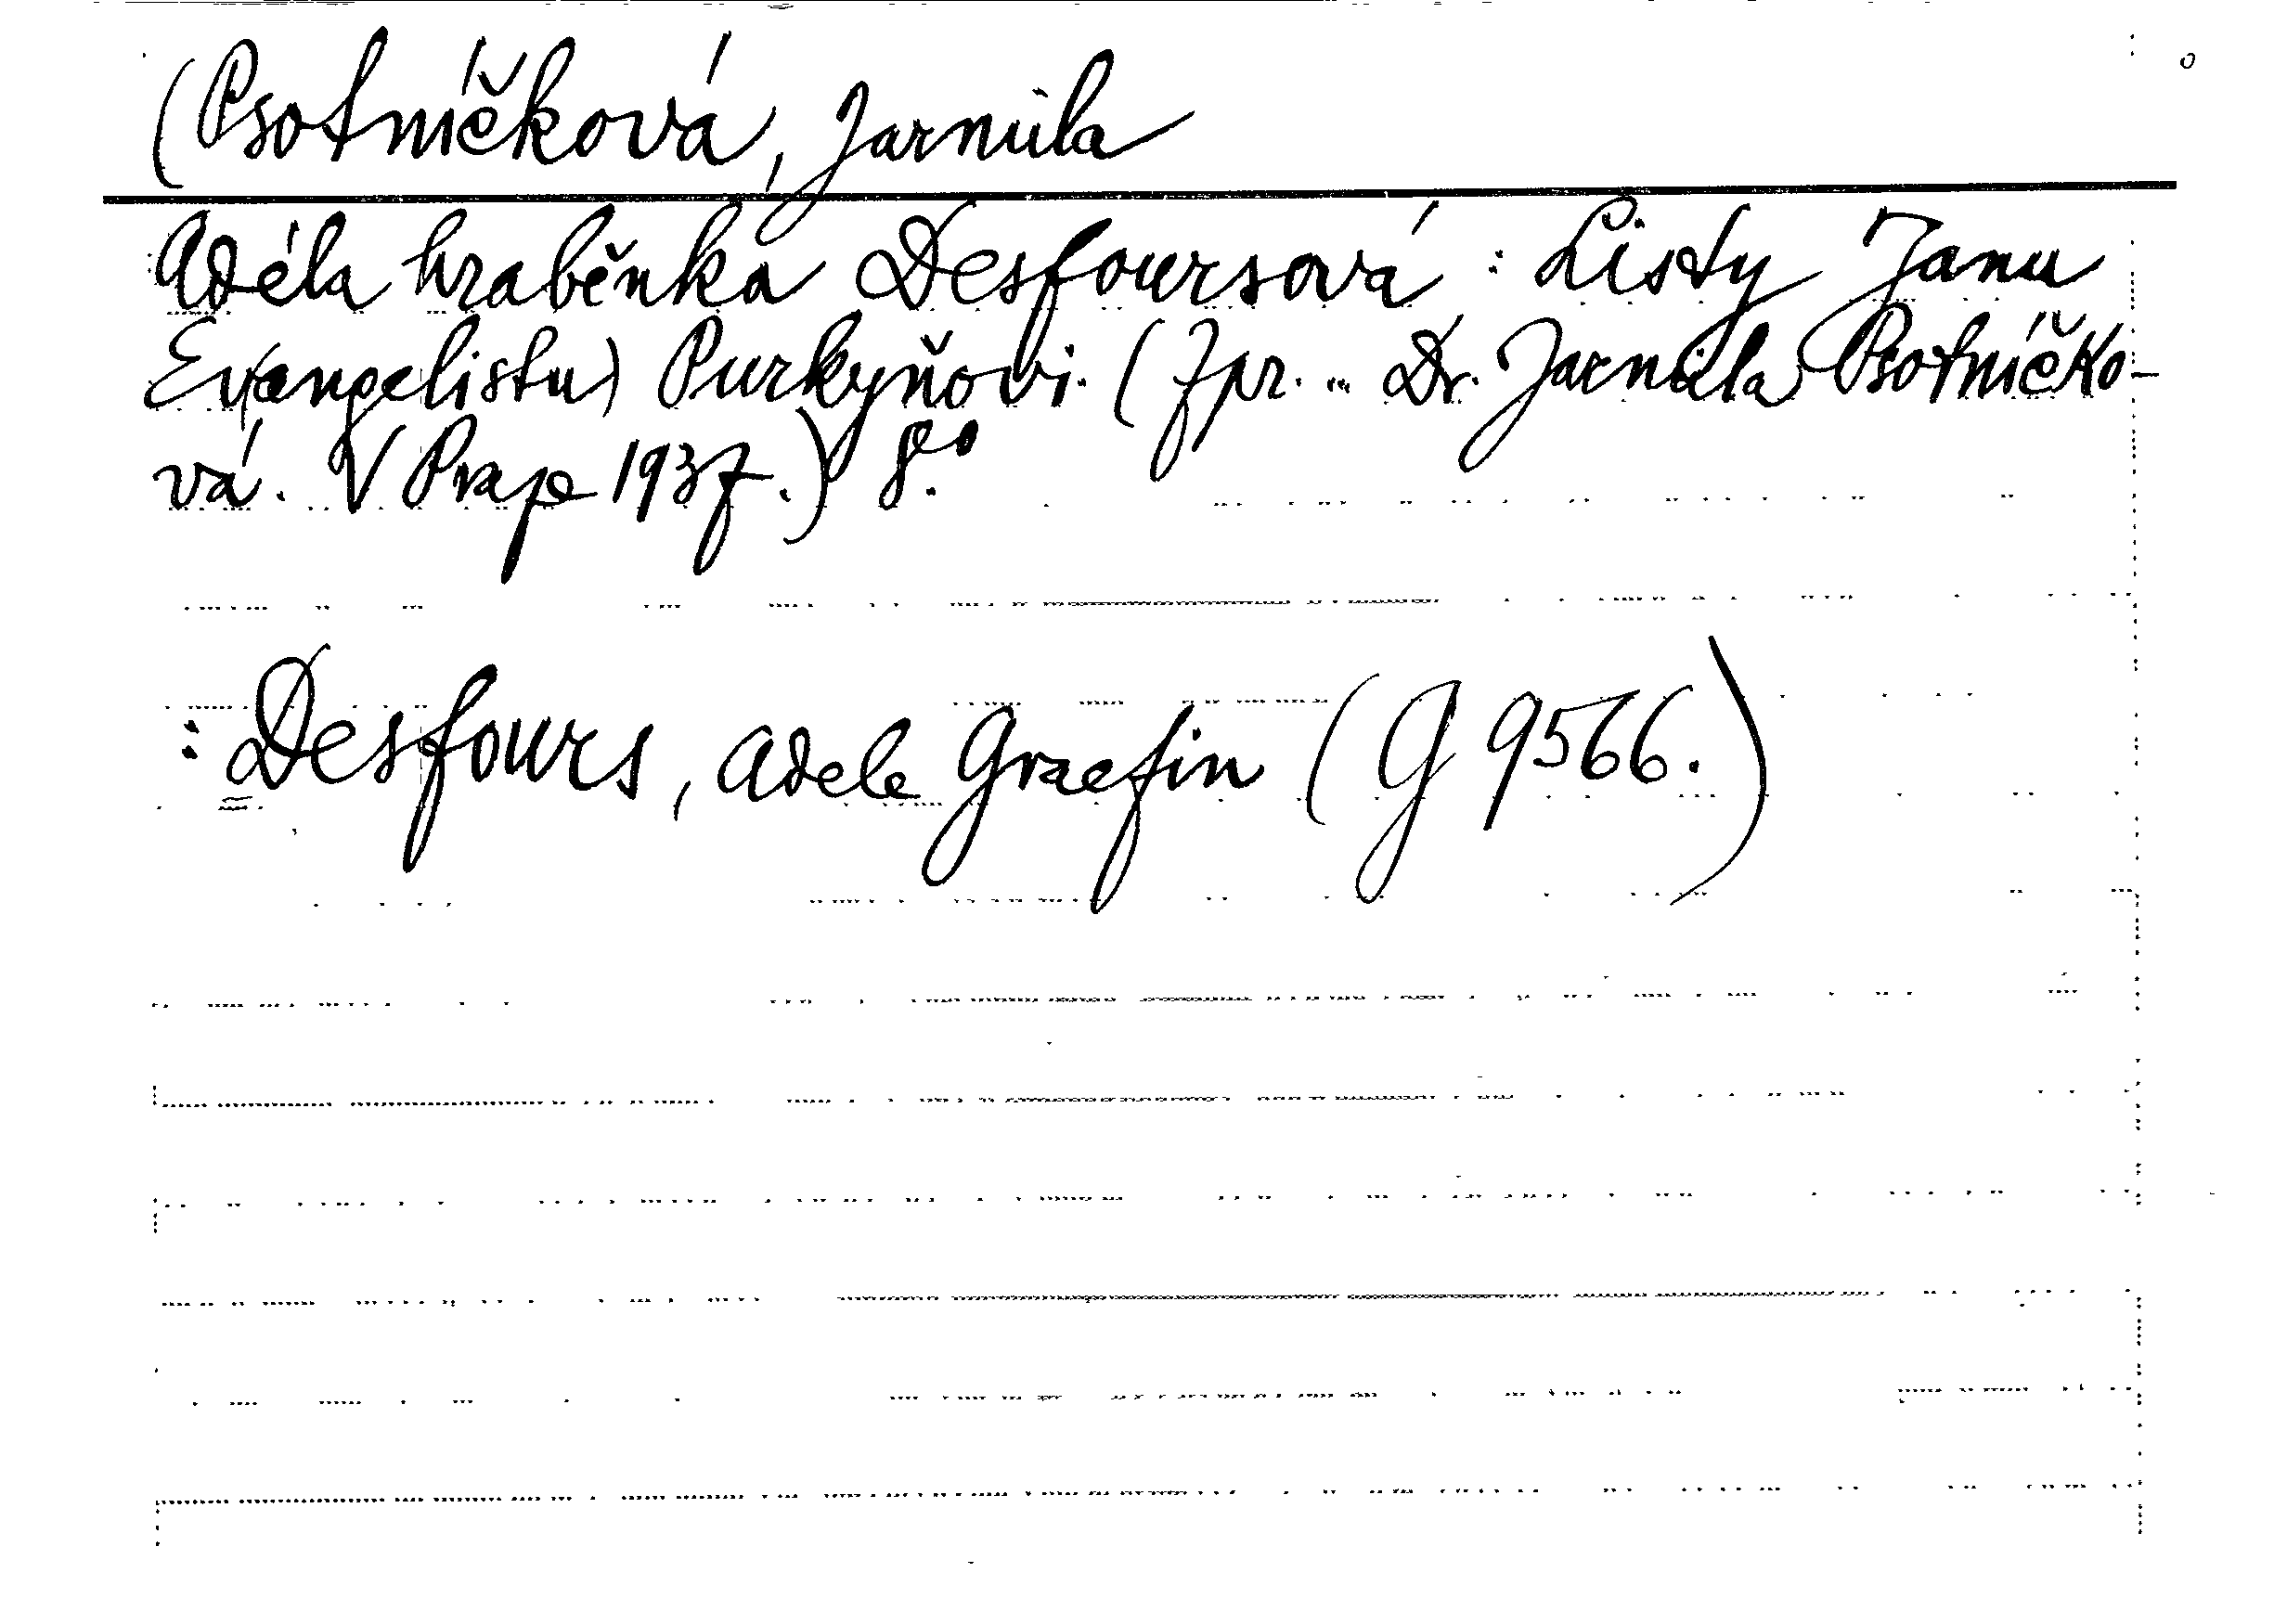 (Psotníčková, Jarmila
Adéla hraběnka Desfoursová: Listy Janu
Ev(angelistu) Purkyňovi. (Zpr. ... Dr. Jarmila Psotníčko-
vá. V Praze 1937.) 8°.
: Desfours, Adele Graefin (G 9566.)